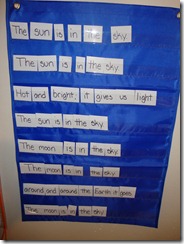 The sun is in the sky
The sun is in the sky
Hot and bright, it gives us light
The sun is in the sky
The moon is in the sky
The moon is in the sky
around and around the Earth it goes
The moon is in the sky